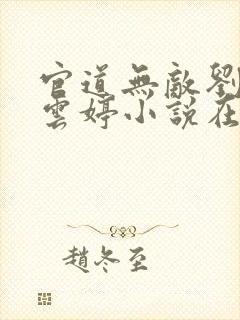 官道無敵劉
雲婷小說在
趙冬至